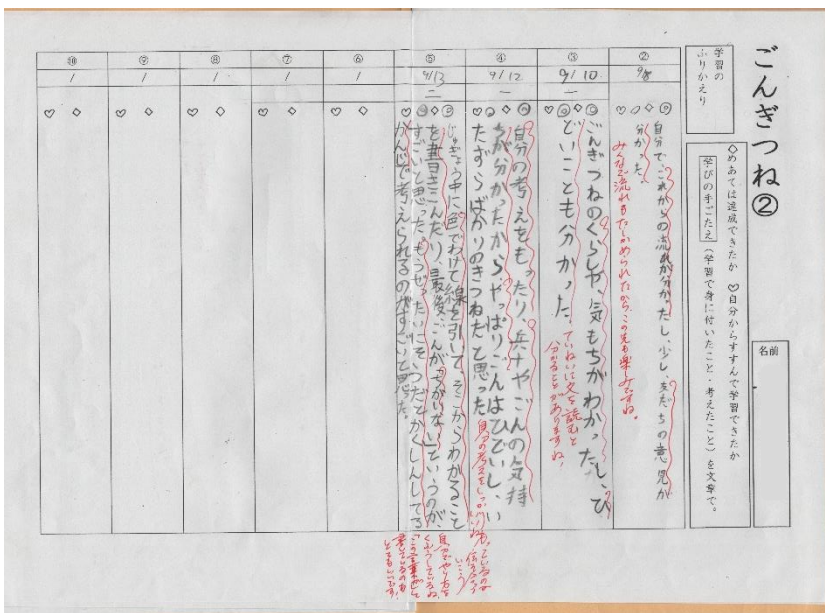 ごんぎつね②
名前
学習の
ふりかえり
◇めあては達成できたか ♡自分からすすんで学習できたか
学びの手ごたえ(学習で身に付いたこと・考えたこと)を文章で。
②
9/8
自分で、これからの流れが分かったし、少し、友だちの意見が
分かった。
みんなで流れもたしかめられたから、この先も楽しみですね。
③
9/10
一
ごんぎつねのくらしや、気もちがわかったし、ひ
どいことも分かった。
ていねいに文を読むと
分かることがありますね!
④
9/12
一
自分の考えをもったり、兵十やごんの気持
ちが分かったから、やっぱりごんはひどいし、い
たずらばかりのきつねだと思った
⑤
9/13
二
じゅぎょう中に色でわけて線を引いて、そこからわかること
を書きこんだり、最後、ごんが、ちがいないというのが、
すごいと思った。もうぜったいにそうだとかくしんしてる
かんじで考えられるのがすごいと思った。
自分でやり方を
くふうしているね。
⑥
/
⑦
/
⑧
/
⑨
/
⑩
/